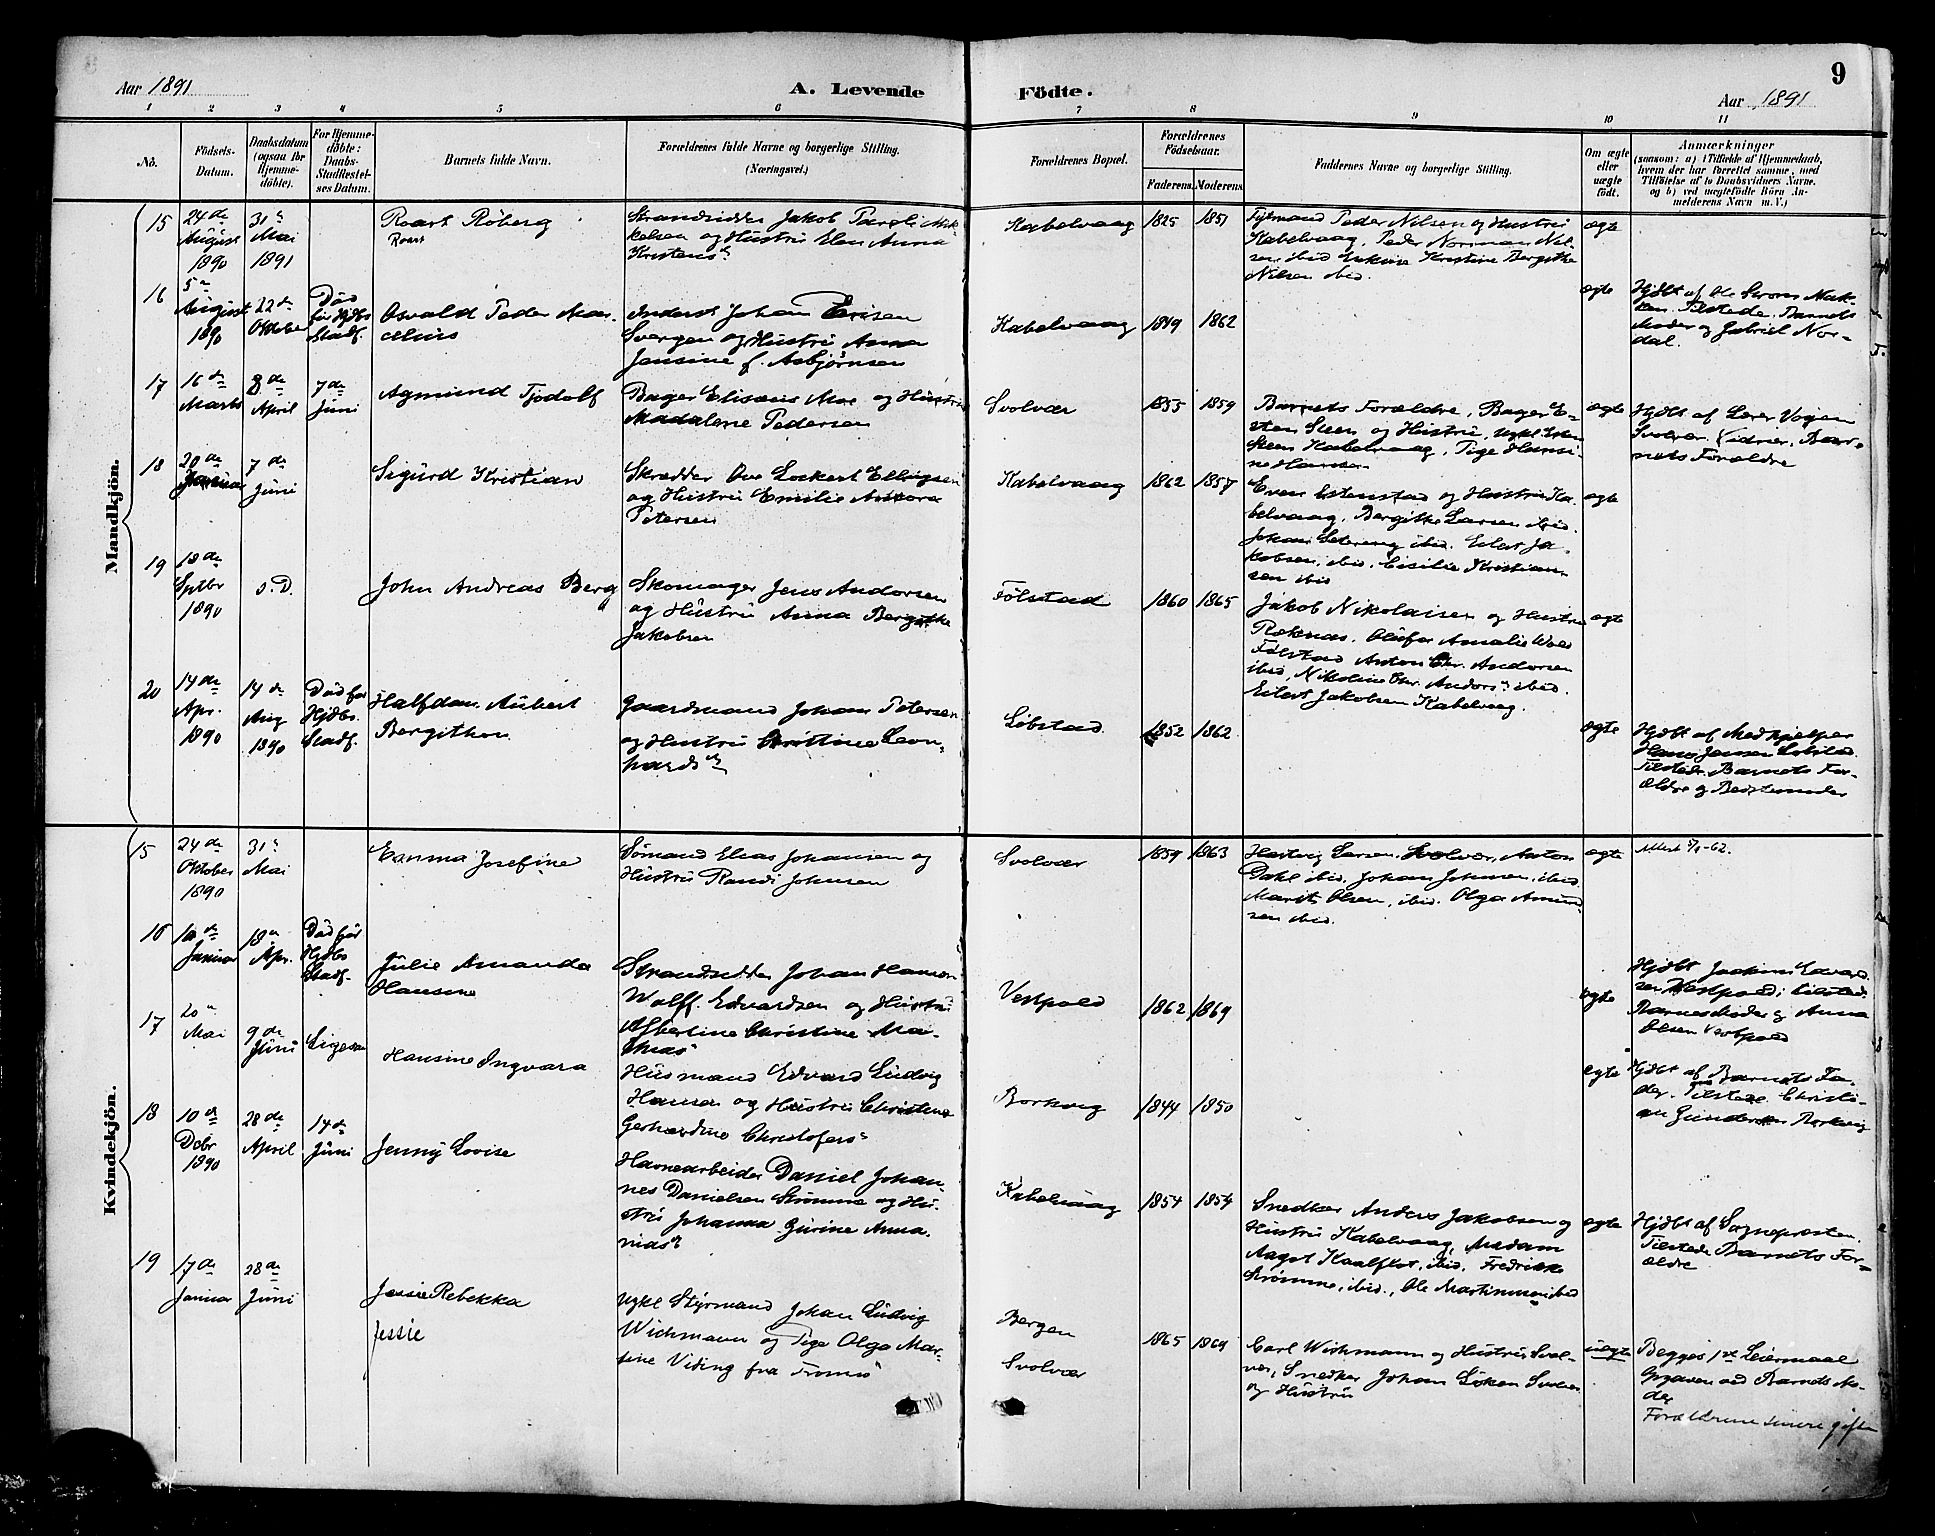 Aar 1891
A. Levende
Födte.
Aar 1891
9
1 2 3 4 5 6 7 8 9 10 11
No.
Födsels-
Datum.
Daabsdatum
(ogsaa for
Hjemme-
döbte).
For Hjemme-
döbte:
Daabs-
Stadfæstel-
ses Datum.
Barnets fulde Navn.
Forældrenes fulde Navne og borgerlige Stilling.
(Næringsvei.)
Forældrenes Bopæl.
Forældrenes
Födselsaar.
Faderens.
Moderens.
Faddernes Navne og borgerlige Stilling.
Om ægte
eller
uægte
födt.
Anmærkninger
(saasom: a) i Tilfælde af Hjemmedaab,
hvem der har forrettet samme, med
Tilföielse af to Daabsvidners Navne,
og b) ved uægtefödte Börn An-
melderens Navn m. V.)
Mandkjön.
15
24de
August
1890
31te
Mai
1891
Roart Röberg
Roart
Strandsidder Jakob Pareli Mik-
kelsen og Hustru Elen Anna
Kristens
Kabelvaag
1825
1851
Peder Nilsen og Hustru
Kabelvaag, Peder Norman Nil-
sen ibid Kristine Bergitte
Nilsen ibid.
ægte
16
5te
August
1890
22de
Oktober
Död
før Hjdbs
Stadf.
Osvald Peder Mar-
celius
Inderst Johan
og Hustru Anna
Jensine f. Asbjørnsen
Kabelvaag
1849
1862
ægte
Hjdbt af Ole
Tilstede. Barnets
Moder og Gabriel Nor-
dal.
17
16de
Marts
8de
April
7de
Juni
Agmund Tjodolf
Bager Elisæus Moe og Hustru
Madalene Pedersen
Svolvær
1855
1859
Barnets Forældre, Bager E-
sten Steen og Hustru, Ugkl
Steen Kabelvaag, Pige Hansi-
ne Hansen
ægte
Hjdbt af Lærer Vogen
Svolvær Vidner, Bar-
nets Forældre
18
20de
Januar
7de
Juni
Sigurd Kristian
Skrædder Ove Lockert Ellingsen
og Hustru Emilie
Petersen
Kabelvaag
1862
1857
Even Estenstad og Hustru Ka-
belvaag, Bergitte Larsen ibid
Johan ibid. Eilert Ja-
kobsen, ibid. Cisilie Kristian-
sen ibid
ægte
19
18de
Septbr
1890
s.D.
John Andreas Berg
Skomager Jens Andorsen
og Hustru Anna Bergitte
Jakobsen
Følstad
1860
1865
Jakob Nikolaisen og Hustru
Røknes. Amalie
Følstad Anton Chr. Andorsen
ibid, Nikoline Chr. Andors. ibid.
Eilert Jakobsen Kabelvaag.
ægte
20
14de
Apr.
1890
14de
Aug
1890
Död før
Hjdbs
Stadf.
Halfdan Aubert
Bergithon
Gaardmand Johan Petersen
og Hustru Christine Leon-
hards
Löbstad
1852
1862
ægte
Hjdbt af Medhjelper
Hans Jensen Löbstad
Tilstede. Barnets For-
ældre og Bedstemoder
Kvindekjön.
15
24de
Oktober
1890
31te
Mai
Emma Josefine
Sømand Elias Johansen og
Hustru Randi Johnsen
Svolvær
1859
1863
Hartvig Larsen, Svolvær, Anton
Dahl ibid, Johan Johnsen, ibid
Marith Olsen, ibid. Olga Amund-
sen ibid.
ægte
Attest
16
10de
Januar
18de
Apr.
Död før
Hjdbs
Stadf.
Julie Amanda
Hansine
Strandsidder Johan Hanson
Wolff Edvardsen og Hustru
Albertine Christine Ma-
thias
Vestpold
1862
1869
ægte
Hjdbt Joakim Edvard-
sen Vestpold; tilstede
Barnets Moder og Anna
Olsen Vestpold
17
20de
Mai
9de
Juni
Ligesaa
Hansine Ingvara
Husmand Edvard Ludvig
Hansen og Hustru Christine
Gerhardine Christofers
Borkvig
1844
1850
ægte
Hjdbt af Barnets Fa-
der. Tilstede Christi-
an Gundersen Borkvig
18
10de
Debr
1890
28de
April
14de
Juni
Jenny Lovise
Havnearbeider Daniel Johan-
nes Danielsen Strömme og Hu-
stru Johanna Gurine Anna-
nias
Kabelvaag
1854
1854
Snedker Anders Jakobsen og
Hustru Kabelvaag, Madam
Aagot Kaalflot, ibid, Fredrikke
Strömme, ibid., Ole Martinussen ibid
ægte
Hjdbt af Sognepresten.
Tilstede Barnets For-
ældre
19
17de
Januar
28de
Juni
Jessie Rebekka
Jessie
Ugkl Styrmand Johan Ludvig
Wichmann og Pige Olga Mar-
tine Viding fra Tromsö
Bergen
Svolvær
1865
1869
Carl Wichmann og Hustru, Svol-
vær, Snedker Johan Löken Svolvær
og Hustru
uægte
Begges 1ste Leiermaal
Opgaven ved Barnets Mo-
der
Forældrene senere gifte